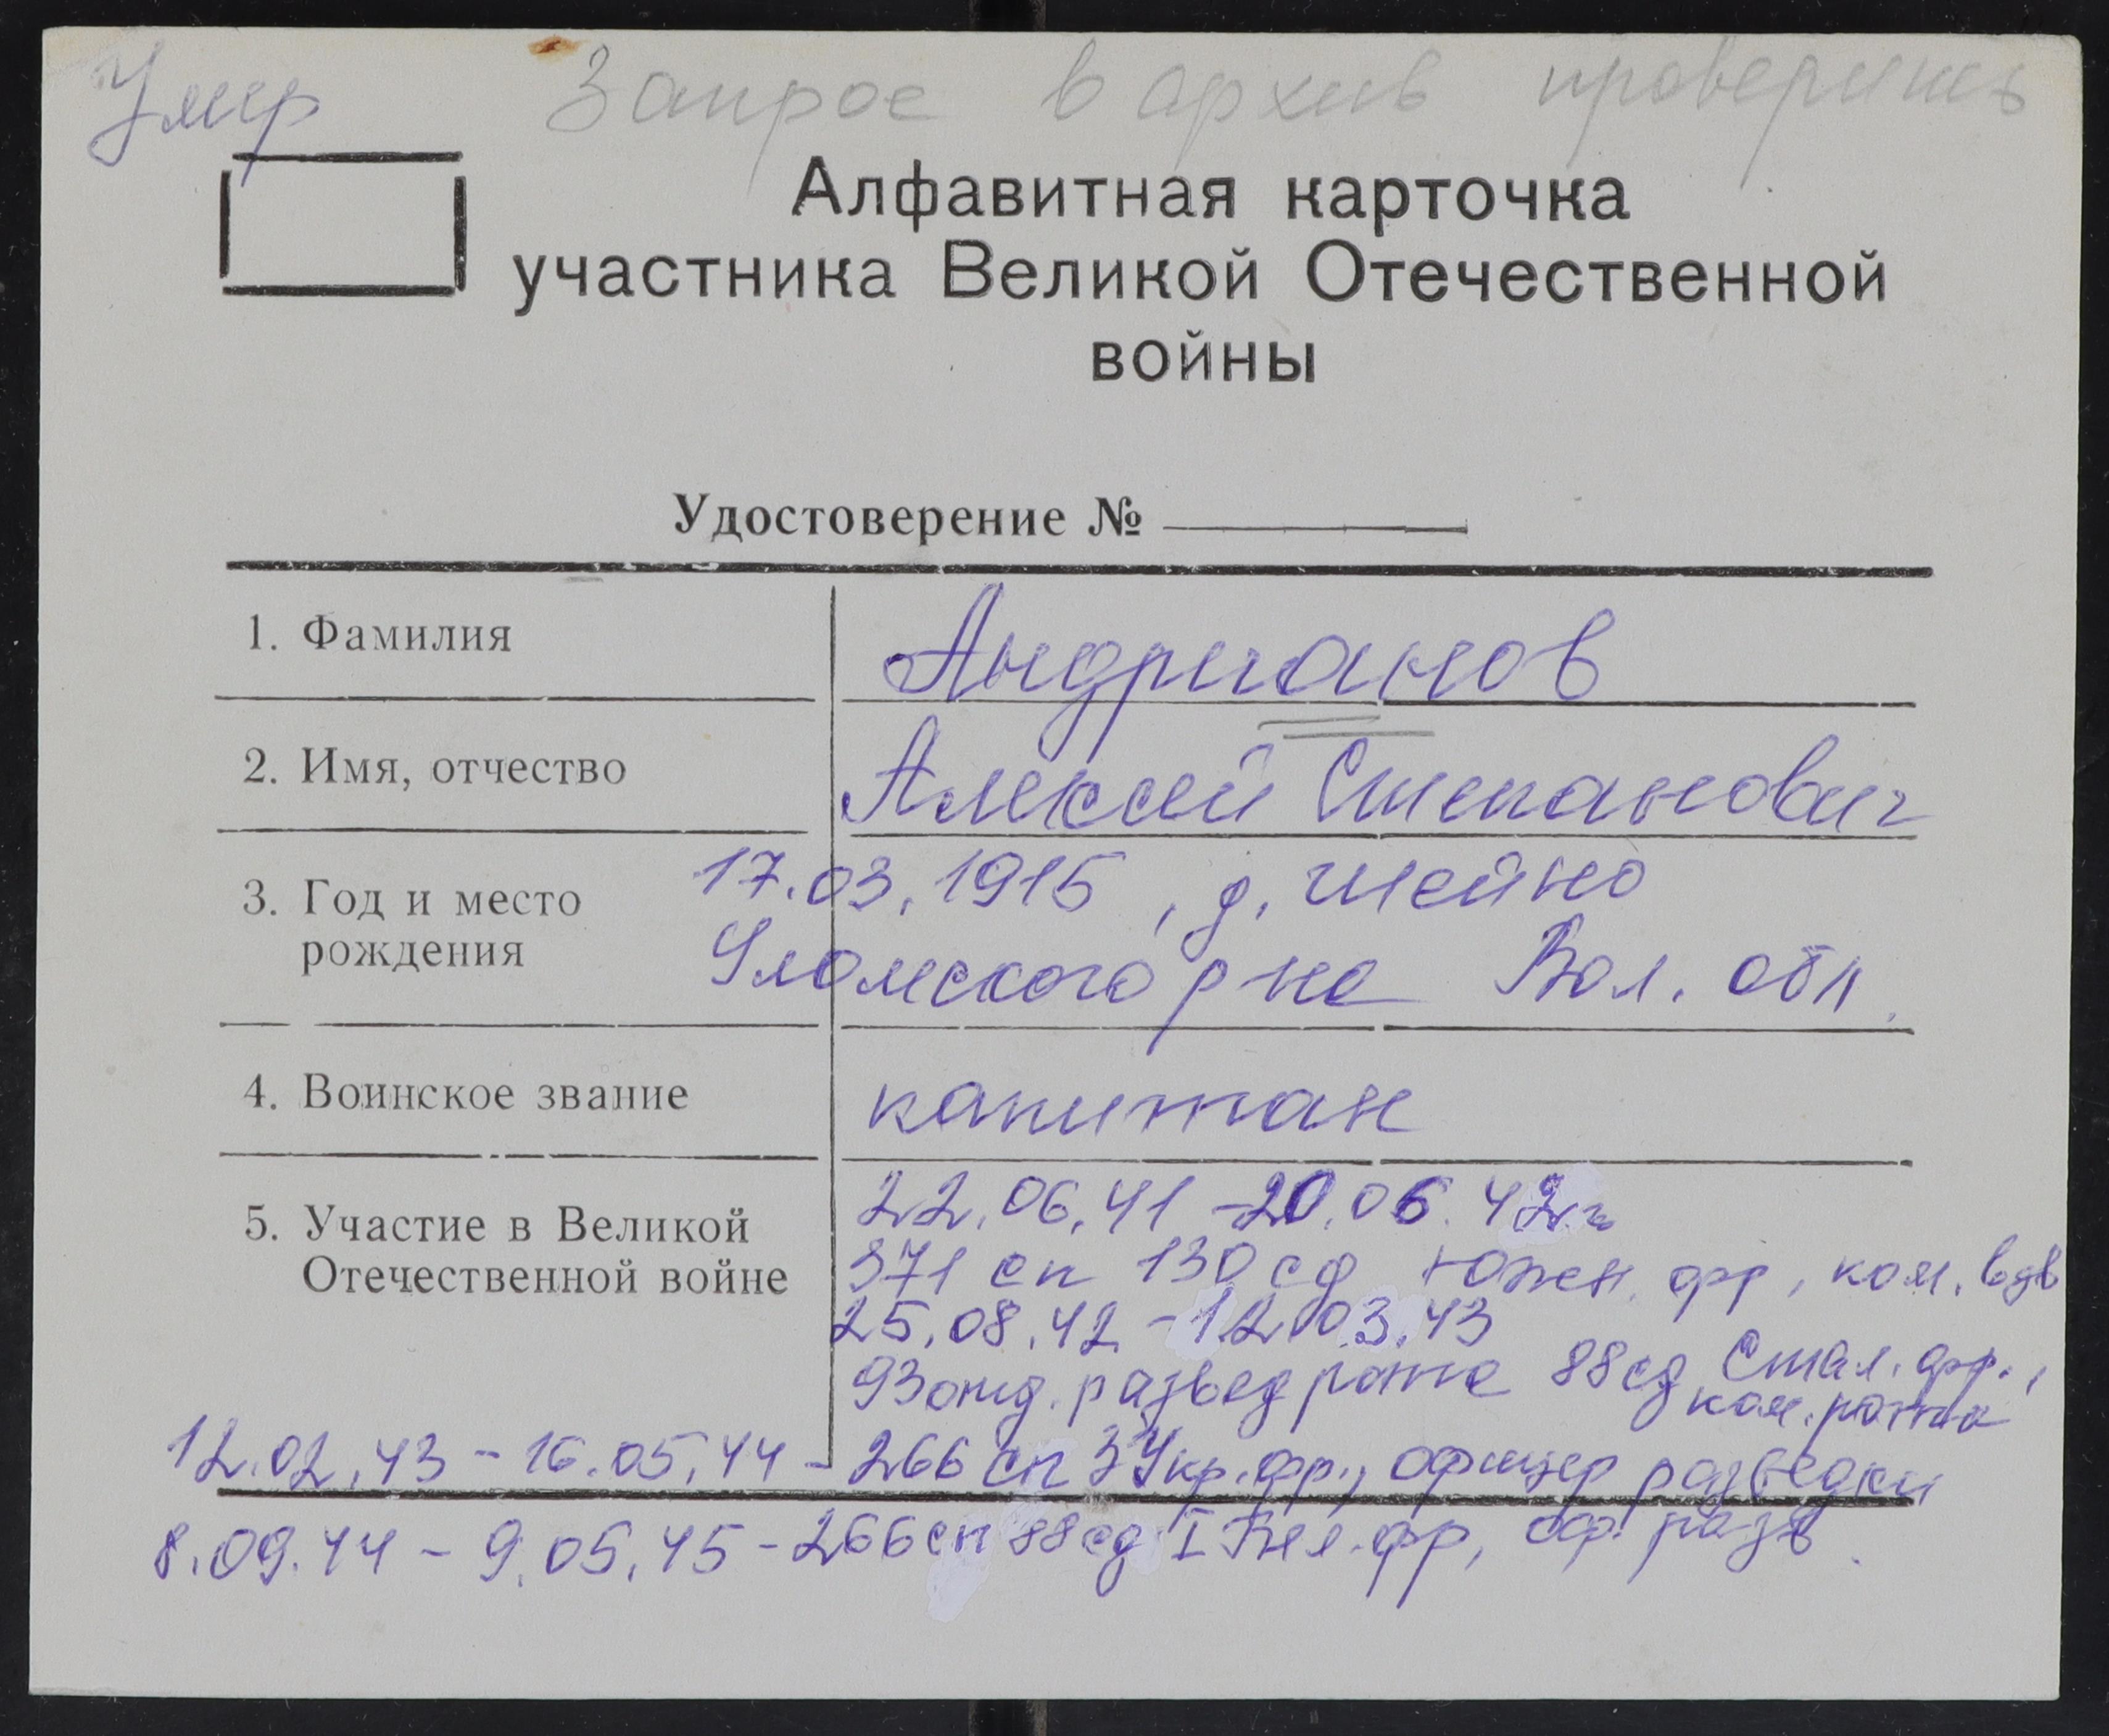 Умер Запрос в архив проверить
Алфавитная карточка
участника Великой Отечественной
войны
Удостоверение №
1. Фамилия Андрианов
2. Имя, отчество Алексей Степанович
3. Год и место 17.03.1915, д. Шейно
рождения Уломского р-на Вол. обл.
4. Воинское звание капитан
5. Участие в Великой 22.06.41 - 20.06.42 г
Отечественной войне 371 сп 130 сд Южн. фр, ком. взв
25.08.42 - 12.03.43
93 отд. развед рота 88 сд Стал. фр.,
ком. роты
12.02.43 - 16.05.44 - 266 сп 3 Укр. фр., офицер разведки
8.09.44 - 9.05.45 - 266 сп 88 сд I Бел. фр, оф. разв.